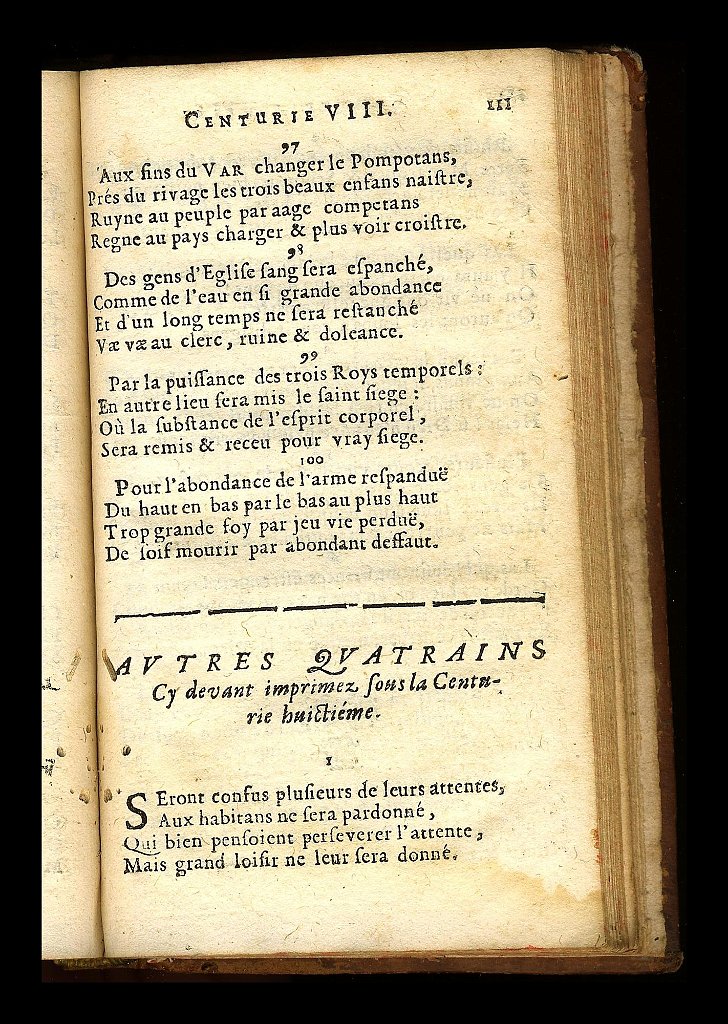 CENTURIE VIII. 111
97
Aux fins du VAR changer le Pompotans,
Prés du rivage les trois beaux enfans naiſtre,
Ruyne au peuple par aage competans
Regne au pays charger & plus voir croiſtre.
98
Des gens d'Egliſe ſang ſera eſpanché,
Comme de l'eau en ſi grande abondance
Et d'un long temps ne ſera reſtanché
Væ væ au clerc, ruine & doleance.
99
Par la puiſſance des trois Roys temporels :
En autre lieu ſera mis le ſaint ſiege :
Où la ſubſtance de l'eſprit corporel,
Sera remis & receu pour vray ſiege.
100
Pour l'abondance de l'arme reſpanduë
Du haut en bas par le bas au plus haut
Trop grande foy par jeu vie perduë,
De ſoif mourir par abondant deffaut.
AVTRES QVATRAINS
Cy devant imprimez ſous la Centu-
rie huictiéme.
1
SEront confus pluſieurs de leurs attentes,
Aux habitans ne ſera pardonné,
Qui bien penſoient perſeverer l'attente,
Mais grand loiſir ne leur ſera donné.